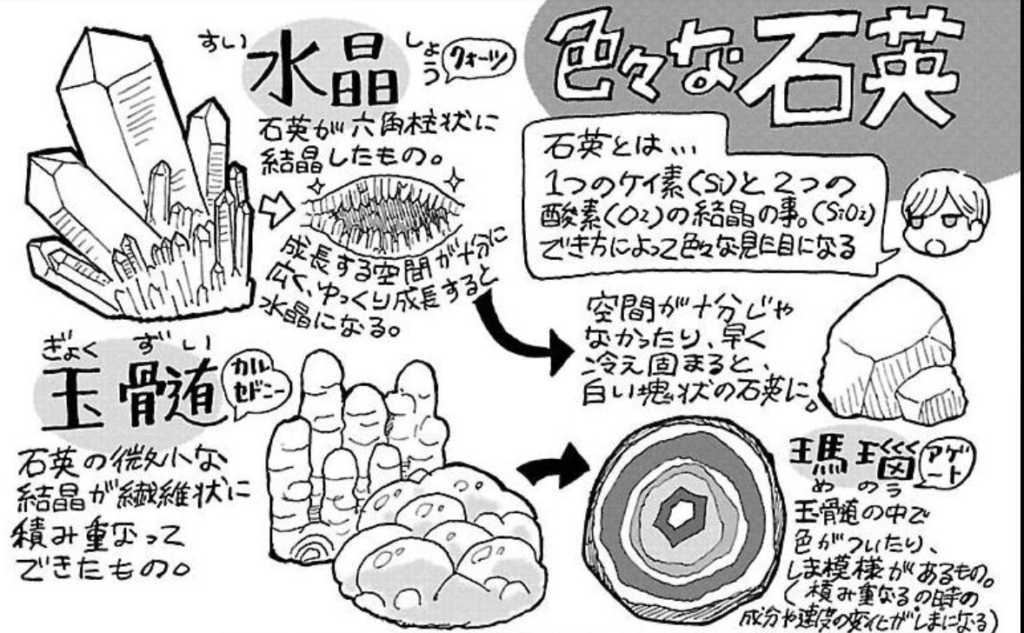 色々な石英
石英とは...
1つのケイ素(Si)と2つの
酸素(O2)の結晶の事。(SiO2)
できオによって色々な見た目になる
水晶
すい
しょう
クォーツ
石英が六角柱状に
結晶したもの。
成長する空間が十分に
広く、ゆっくり成長すると
水晶になる。
空間が十分じゃ
なかったり、早く
冷え固まると、
白い塊状の石英に。
玉髄
ぎょく
ずい
カル
セドニー
石英の微小な
結晶が繊維状に
積み重なって
できたもの。
瑪瑙
めのう
アゲ
ート
玉髄の中で
色がついたり、
しま模様があるもの。
(積み重なるの時の
成分や速度の変化がしまになる)